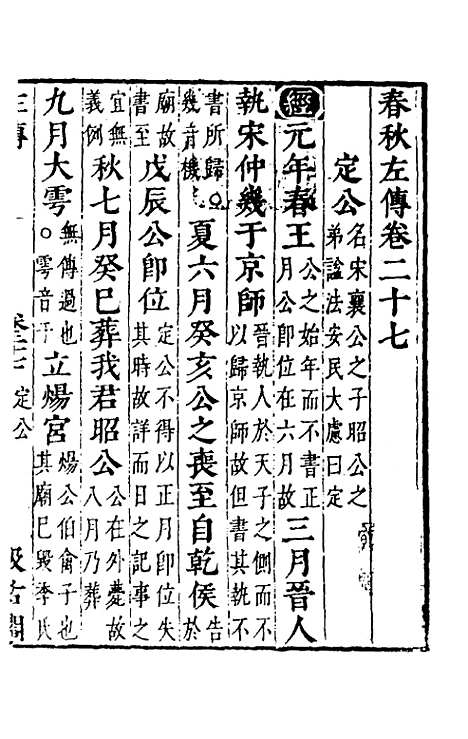 春秋左傳卷二十七
定公 名宋襄公之子昭公之
弟諡法安民大慮曰定
經元年春王 公之始年而不書正
月公即位在六月故 三月晉人
執宋仲幾于京師 晉執人於天子之側而不
以歸京師故但書其執不
書所歸○
幾音機 夏六月癸亥公之喪至自乾侯 告
於
廟故
書至 戊辰公即位 定公不得以正月即位失
其時故詳而日之記事之
宜無
義例 秋七月癸巳葬我君昭公 公在外薨故
八月乃葬
九月大雩 無傳過也
○雩音于 立煬宮 煬公伯禽子也
其廟已毀季氏
定公
汲古閣